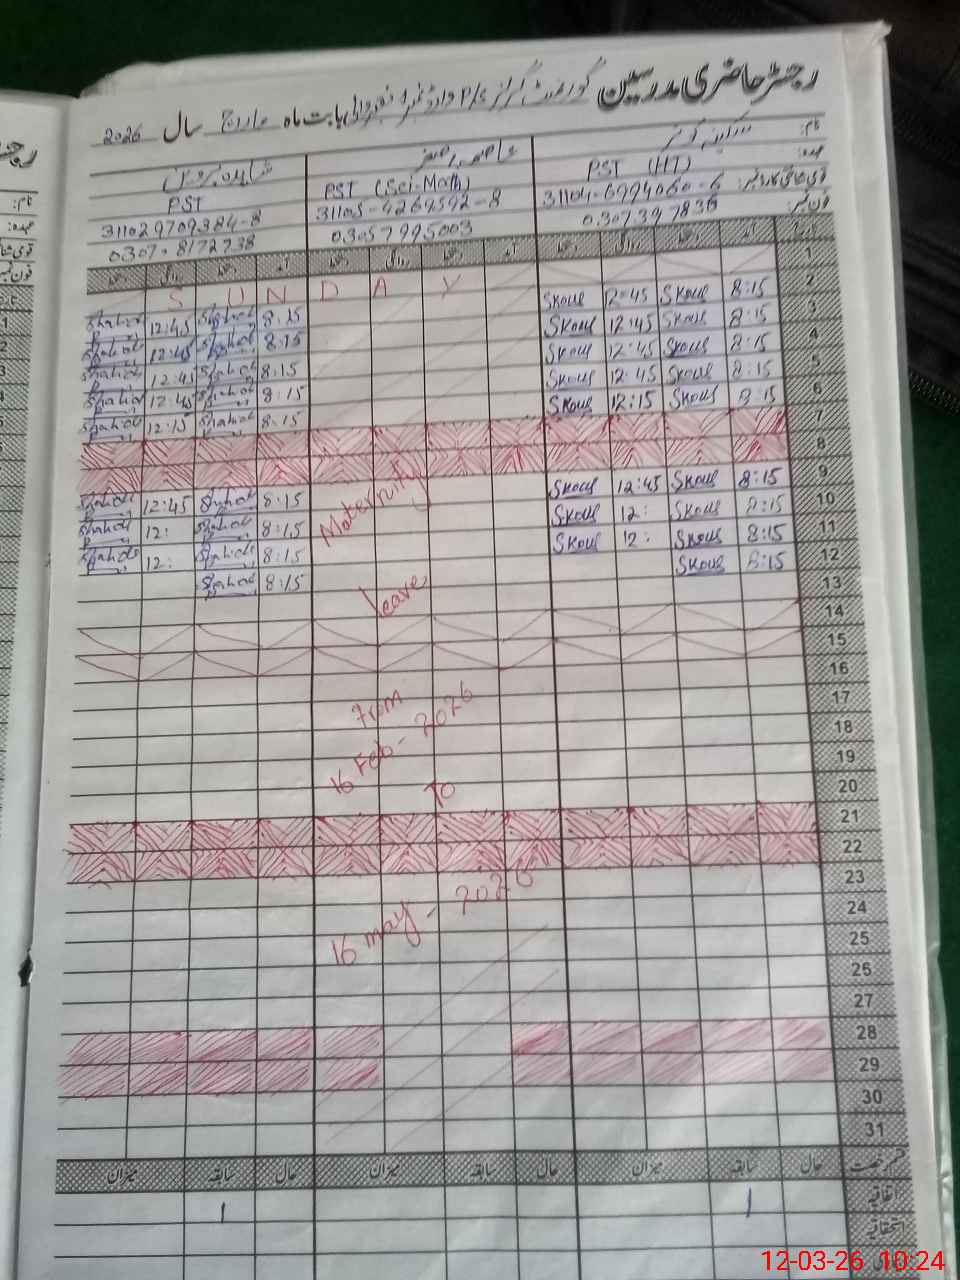 رجسٹر حاضری مدرسین گورنمنٹ گرلز P/S وارڈ نمبر 1 بابت ماہ مارچ سال 2026
نام: عاصمہ اصغر شاہدہ پروین
عہدہ: PST (HT) PST (Sci-Math) PST
قومی شناختی کارڈ نمبر: 31104-6994060-6 31105-4269592-8 311029709384-8
فون نمبر: 03073977836 03057995003 0307-8172738
تاریخ آمد دستخط روانگی دستخط آمد دستخط روانگی دستخط آمد دستخط روانگی دستخط
1 S U N D A Y
2 8:15 Skous 12:45 Skous 8:15 Shahida 12:45 Shahida
3 8:15 Skous 12:45 Skous 8:15 Shahida 12:45 Shahida
4 8:15 Skous 12:45 Skous 8:15 Shahida 12:45 Shahida
5 8:15 Skous 12:45 Skous 8:15 Shahida 12:45 Shahida
6 8:15 Skous 12:15 Skous 8:15 Shahida 12:15 Shahida
7
8
9 8:15 Skous 12:45 Skous 8:15 Shahida 12:45 Shahida
10 8:15 Skous 12: Skous 8:15 Shahida 12: Shahida
11 8:15 Skous 12: Skous 8:15 Shahida 12: Shahida
12 8:15 Skous 8:15 Shahida
13
14
15
16
17
18
19
20
21
22
23
24
25
26
27
28
29
30
31
Maternity
leave
From
16 Feb - 2026
To
16 may - 2026
قسم رخصت حال سابقہ میزان حال سابقہ میزان حال سابقہ میزان
اتفاقیہ 1 1
استحقاقیہ
12-03-26 10:24